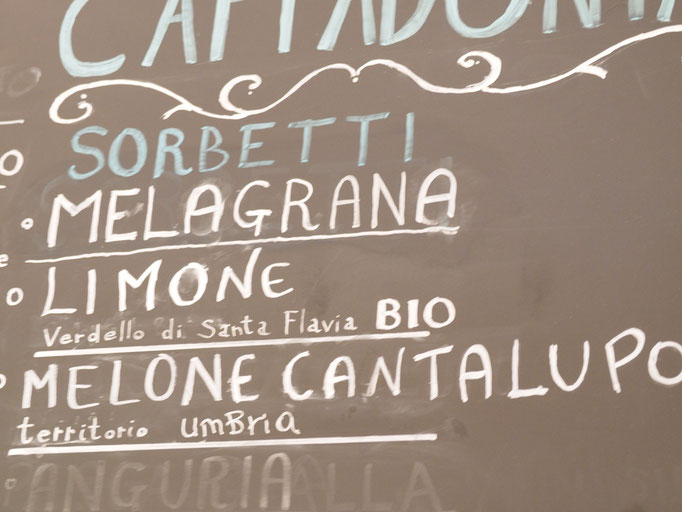 CAPPADONIA
SORBETTI
MELAGRANA
LIMONE
Verdello di Santa Flavia BIO
MELONE CANTALUPO
territorio umBria
ANGURIA ALLA